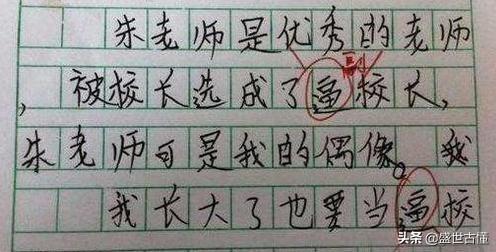 朱老师是优秀的老师
副
,被校长选成了逼校长,
朱老师可是我的偶像。我
我长大了也要当逼校
头条 @盛世古懂